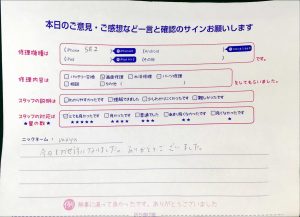 本日のご意見・ご感想など一言と確認のサインお願いします
修理機種は
iPhone SE2
Android
です。
修理内容は
バッテリー交換
画面修理
水没修理
パーツ修理
相談
その他
としてもらいました。
スタッフの説明は
わかりやすかったです
理解できました
少しわかりにくかったです
難しかったです
スタッフの対応は
★星の数★
とても良かったです
良かったです
普通でした
あまり良くなかったです
良くなかったです
★★★★★
★★★★
★★★
★★
★
ニックネーム：
ありがとうございました。
無事に直って良かったです。ありがとうございました